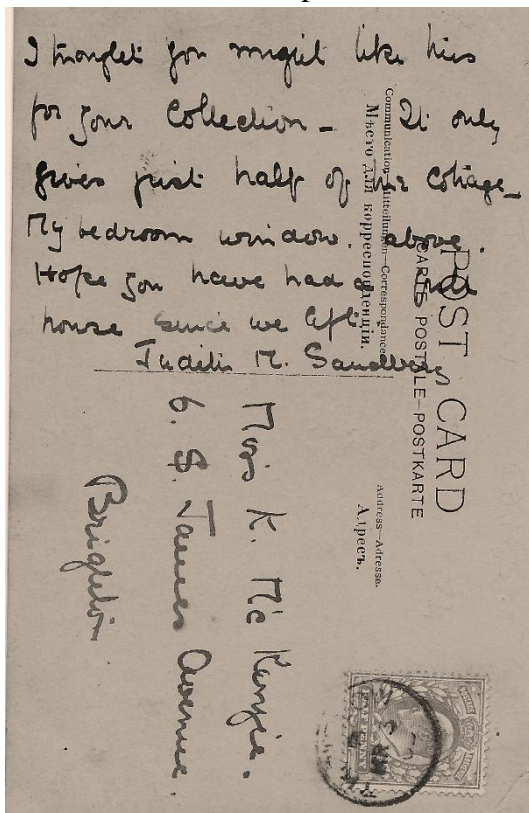 I thought you might like this
for your Collection - It only
gives just half of the Cottage -
My bedroom window. above.
Hope you have had a full
house since we left.
Judith M. Sandberg
POST CARD
CARTE POSTALE-POSTKARTE
Communication-Mitteilungen-Correspondance
Мѣсто для корреспонденціи.
Address-Adresse.
Адресъ.
Miss K. McKenzie.
6. St. James Avenue.
Brighton